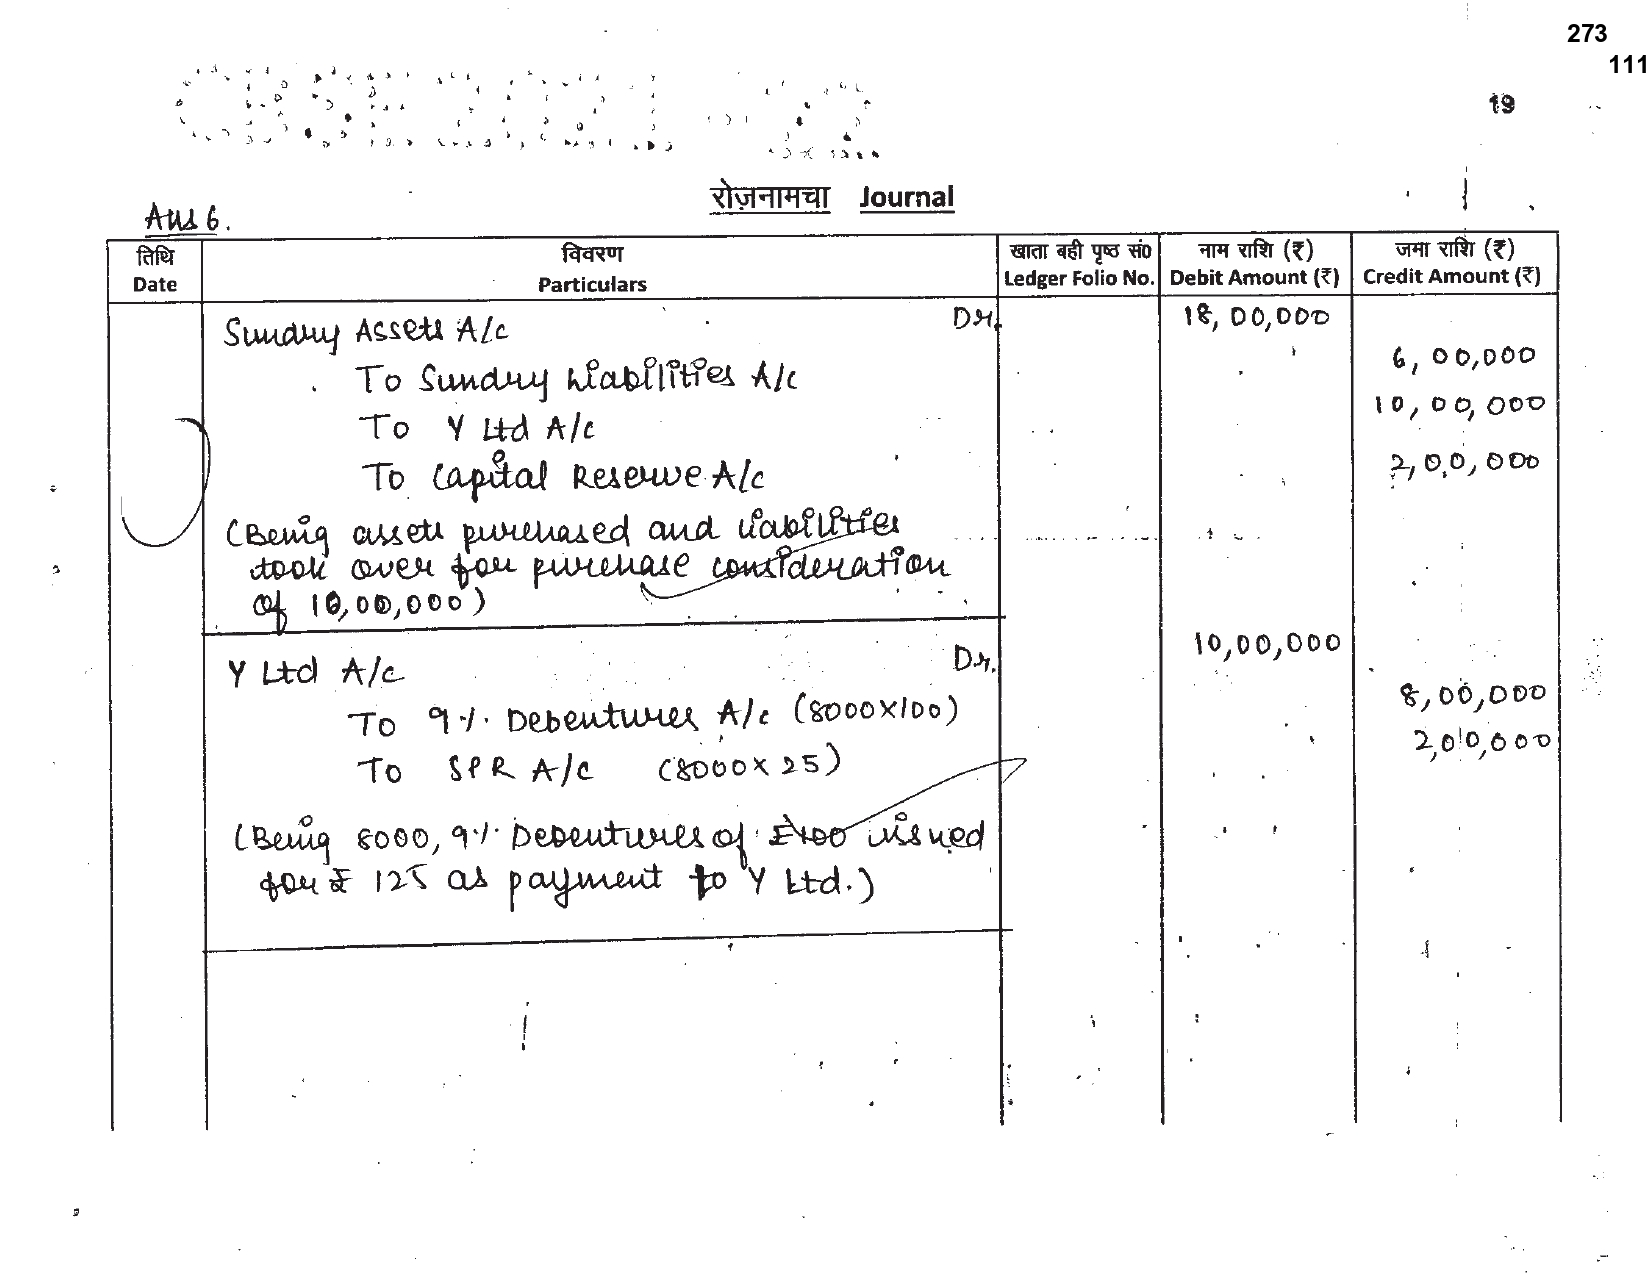 273
111
CBSE 2021-22
19
रोज़नामचा Journal
Ans 6.
तिथि
Date
विवरण
Particulars
खाता बही पृष्ठ सं०
Ledger Folio No.
नाम राशि (₹)
Debit Amount (₹)
जमा राशि (₹)
Credit Amount (₹)
Sundry Assets A/c Dr. 18,00,000
To Sundry Liabilities A/c 6,00,000
To Y Ltd A/c 10,00,000
To Capital Reserve A/c 2,00,000
(Being assets purchased and liabilities
took over for purchase consideration
of 10,00,000)
Y Ltd A/c Dr. 10,00,000
To 9% Debentures A/c (8000×100) 8,00,000
To SPR A/c (8000×25) 2,00,000
(Being 8000, 9% Debentures of ₹100 issued
for ₹ 125 as payment to Y Ltd.)